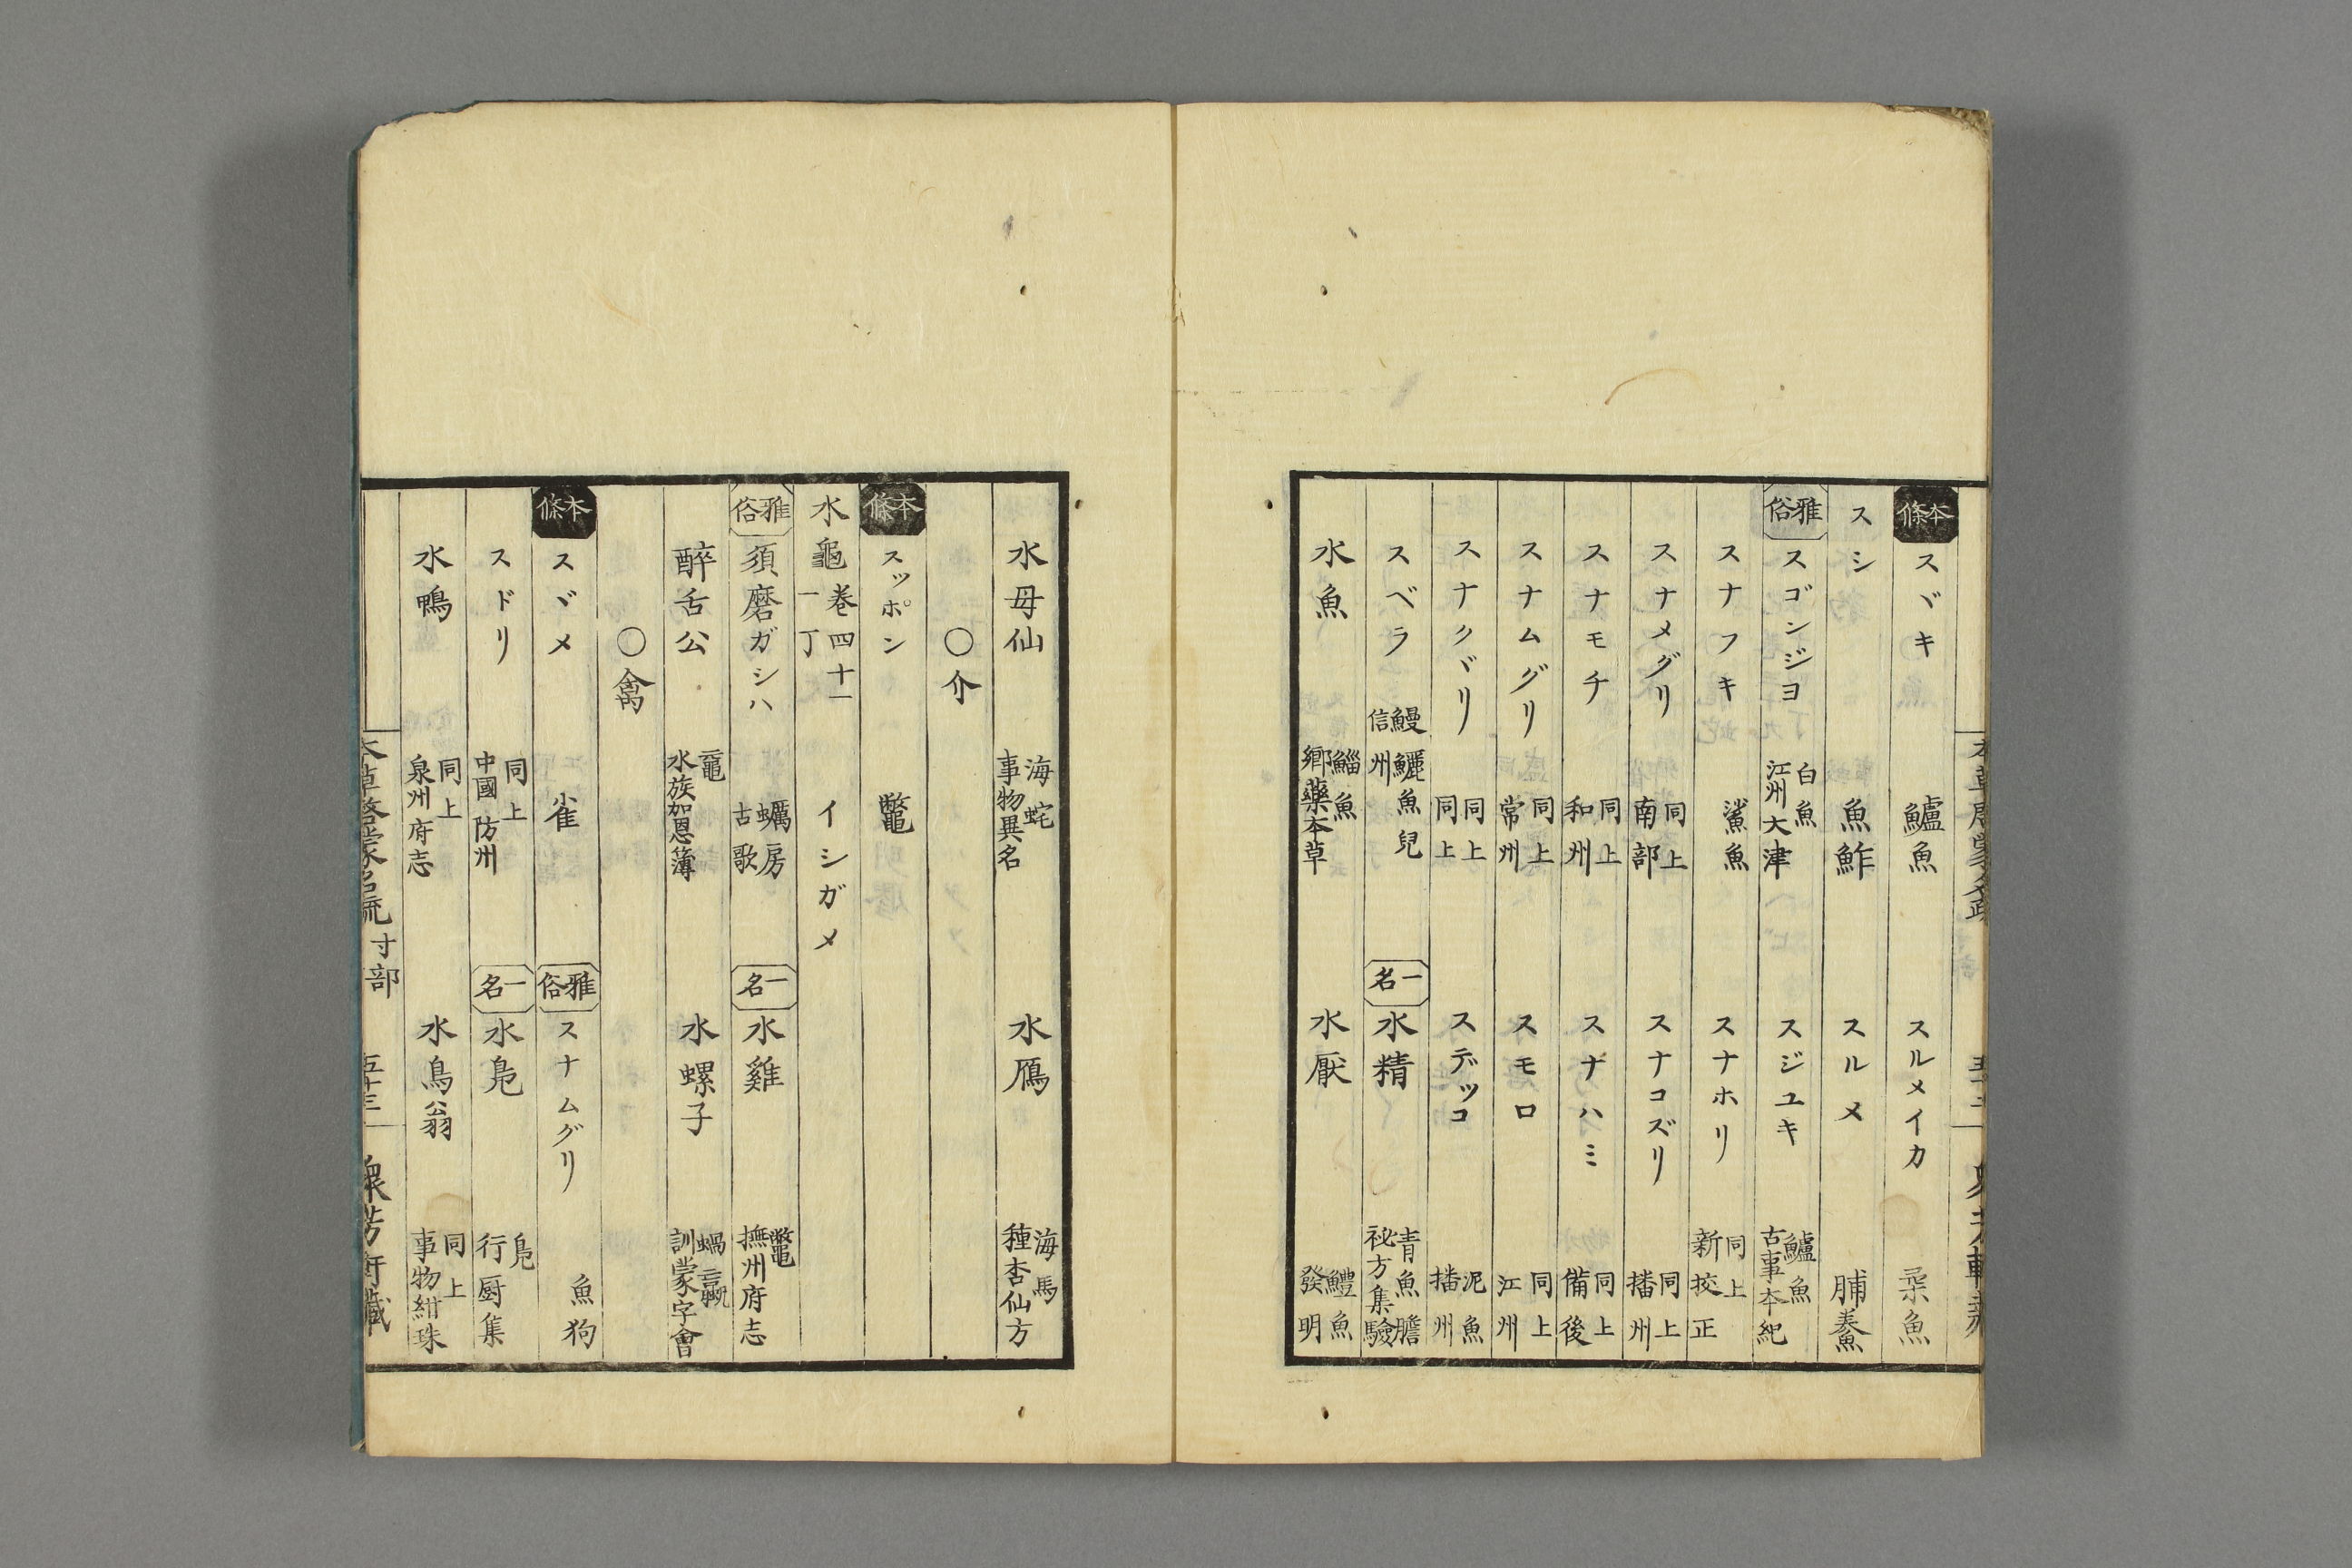 本條 スヾキ 鱸魚 スルメイカ 柔魚
スシ 魚鮓 スルメ 脯鮝
雅俗 スゴンジヨ 白魚 江州大津 スジユキ 鱸魚 古事本紀
スナフキ 鯊魚 スナホリ 同上 新挍正
スナメグリ 同上 南部 スナコズリ 同上 播州
スナモチ 同上 和州 スナハミ 同上 備後
スナムグリ 同上 常州 スモロ 同上 江州
スナクヾリ 同上 同上 スデッコ 泥魚 播州
スベラ 鰻鱺魚兒 信州 一名 水精 青魚膽 祕方集驗
水魚 鯔魚 鄉藥本草 水厭 鱧魚 發明
水母仙 海蛇 事物異名 水鴈 海馬 種杏仙方
○介
本條 スッポン 鼈
水龜 卷四十一 一丁 イシガメ
雅俗 須磨ガシハ 蠣房 古歌 一名 水雞 鼈 撫州府志
醉舌公 黿 水族加恩簿 水螺子 蝸蠃 訓蒙字會
○禽
本條 スヾメ 雀 雅俗 スナムグリ 魚狗
スドリ 同上 中國 防州 一名 水鳧 鳧 行厨集
水鴨 同上 泉州府志 水鳥翁 同上 事物紺珠
本草啓蒙名疏 寸部 五十三 衆芳軒藏